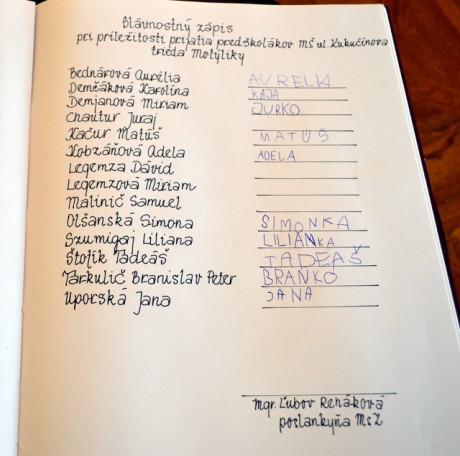 Slávnostný zápis
pri príležitosti prijatia predškolákov MŠ ul. Kukučínova
trieda Motýliky
Bednárová Aurélia AURELIA
Demčáková Karolína KAJA
Demjanová Miriam
Chautur Juraj JURKO
Kačur Matúš MATÚŠ
Kobzáňová Adela ADELA
Legemza Dávid
Legemzová Miriam
Malinič Samuel
Olšanská Simona SIMONKA
Szumigaj Liliana LILIANKA
Štofik Tadeáš TADEÁŠ
Tarkulič Branislav Peter BRANKO
Uporská Jana JANA
Mgr. Ľubov Renáková
poslankyňa MsZ